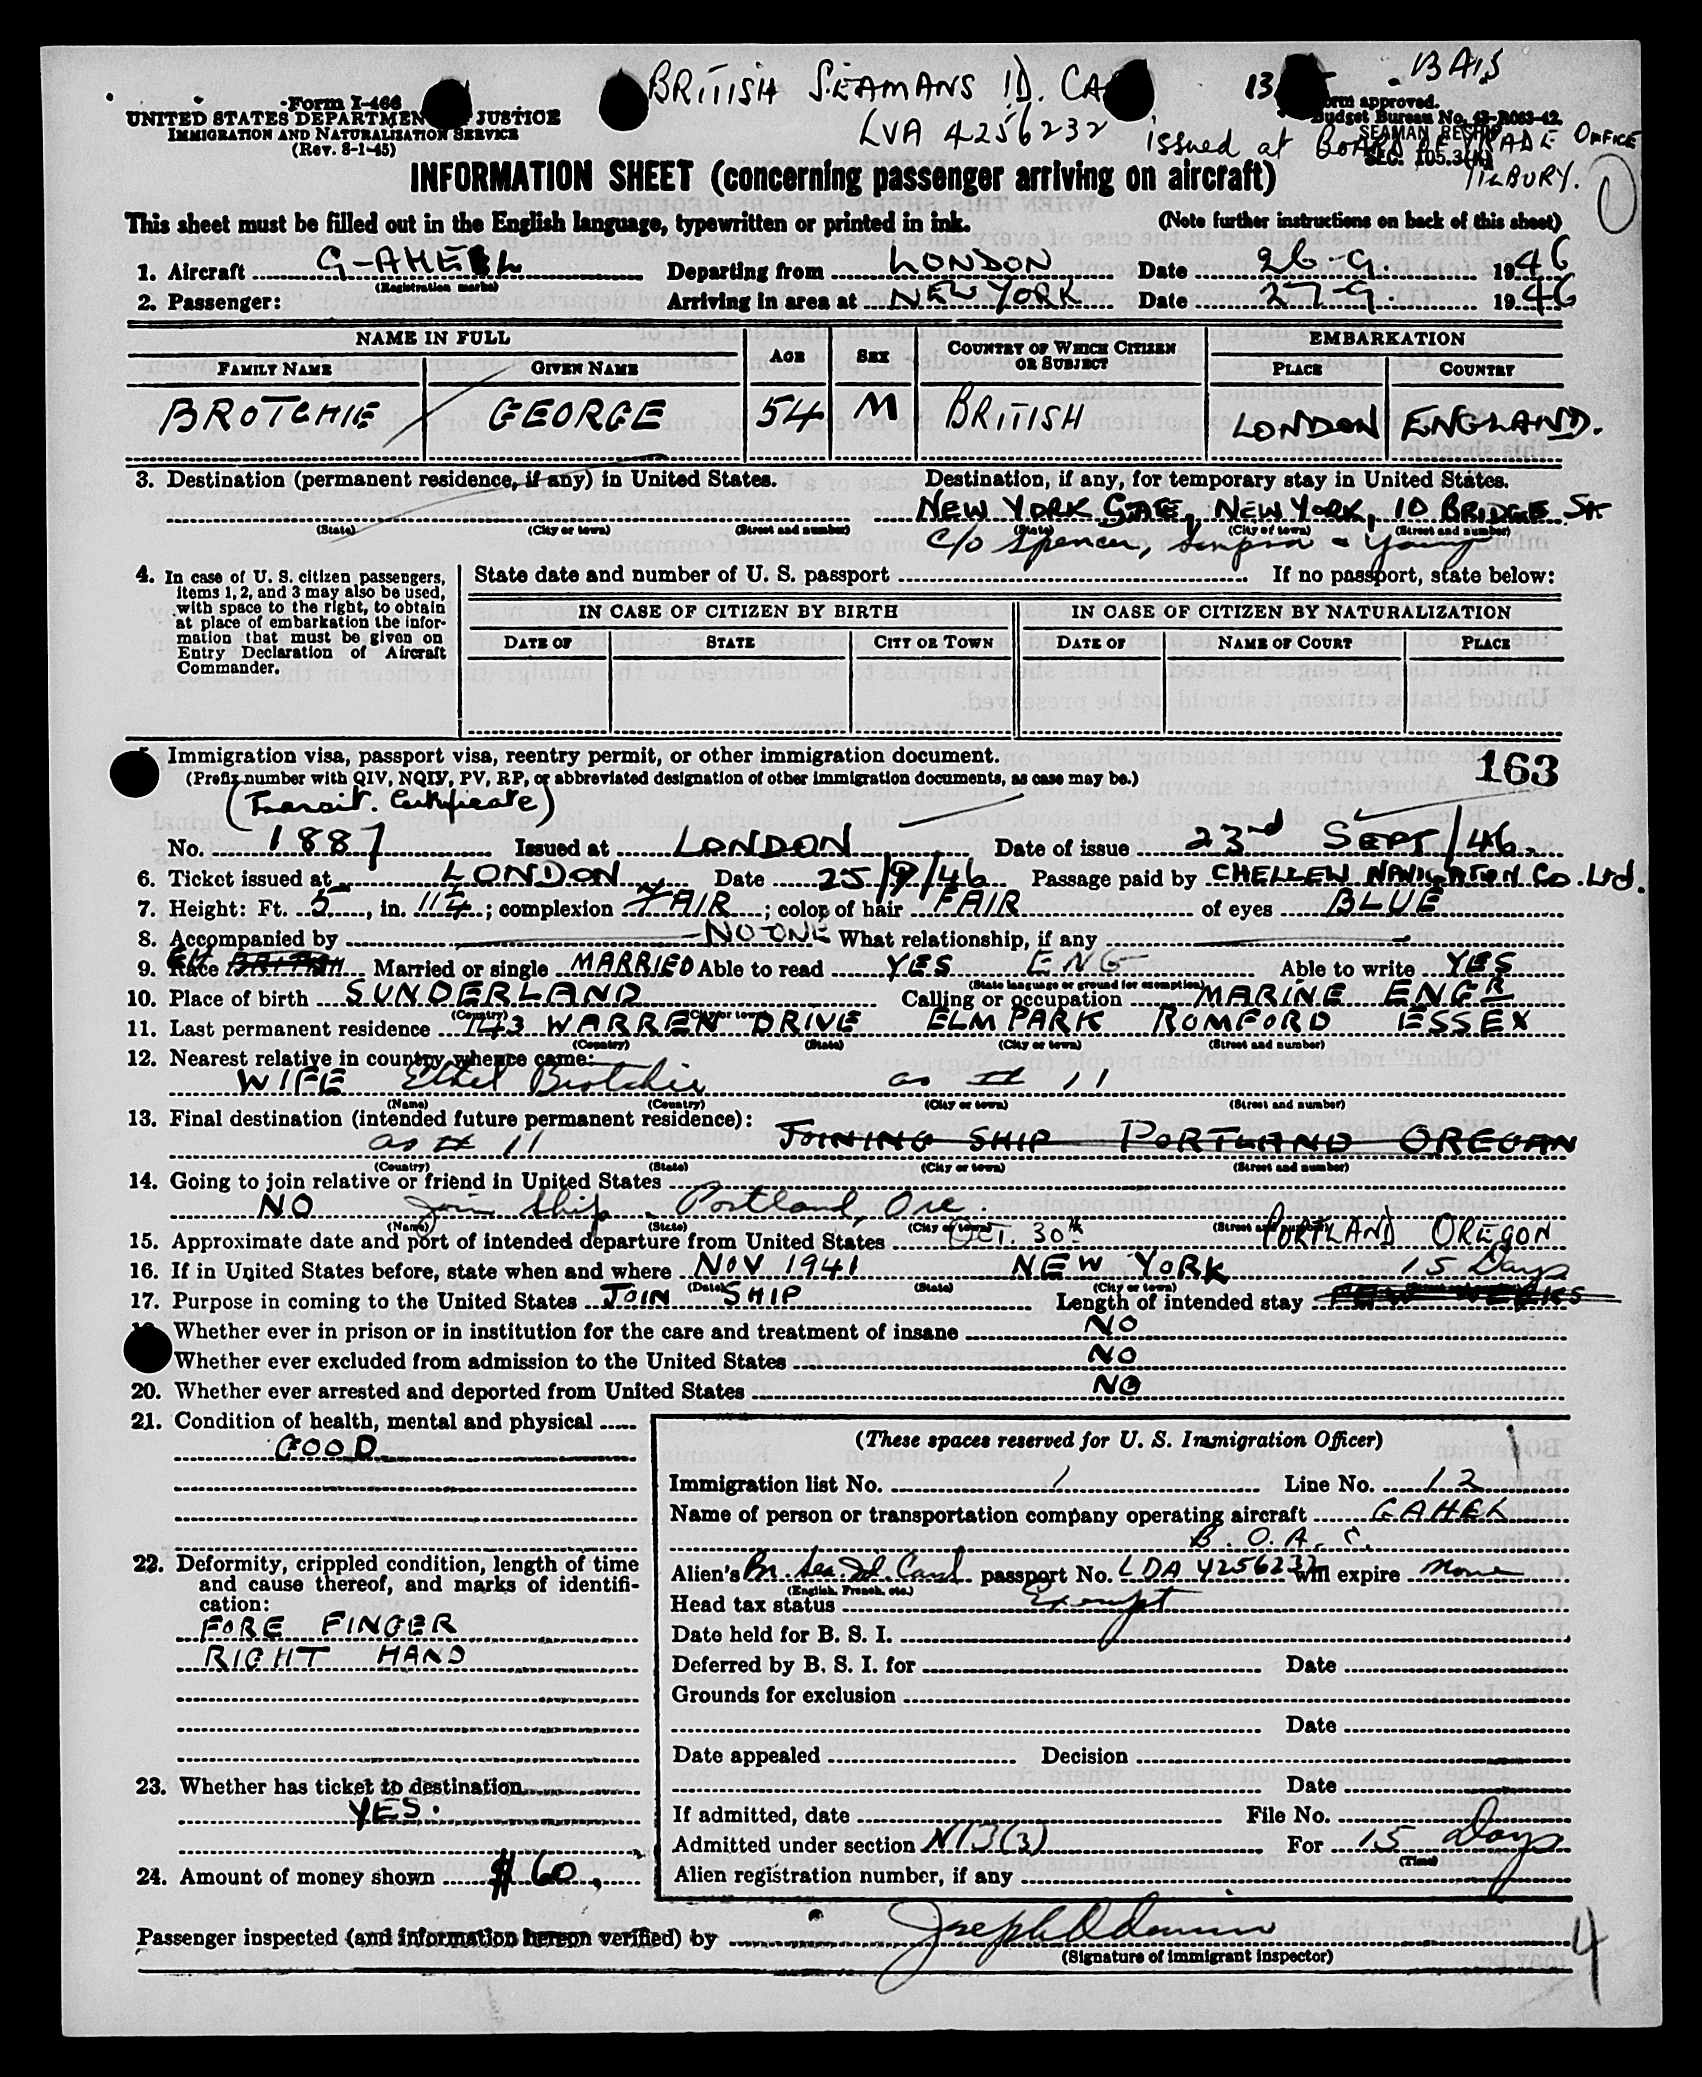 BRITISH SEAMANS ID. CA
13
BAIS
Form I-466
UNITED STATES DEPARTMEN JUSTICE
IMMIGRATION AND NATURALIZATION SERVICE
(Rev. 8-1-45)
orm approved.
Budget Bureau No. 43-R083-42.
LVA 4256232 issued at BOARD OF TRADE OFFICE
SEC. 105.3(A)
TILBURY.
INFORMATION SHEET (concerning passenger arriving on aircraft)
This sheet must be filled out in the English language, typewritten or printed in ink.
(Note further instructions on back of this sheet)
1. Aircraft Departing from LONDON Date 26-9. 1946
(Registration marks)
2. Passenger: Arriving in area at NEW YORK Date 27-9. 1946
NAME IN FULL AGE SEX COUNTRY OF WHICH CITIZEN OR SUBJECT EMBARKATION
FAMILY NAME GIVEN NAME PLACE COUNTRY
BROTCHIE GEORGE 54 M BRITISH LONDON ENGLAND.
3. Destination (permanent residence, if any) in United States. Destination, if any, for temporary stay in United States.
NEW YORK STATE, NEW YORK, 10 BRIDGE St
(State) (City or town) (Street and number) (State) (City of town) (Street and number)
c/o Spencer, Simpson & Young
4. In case of U. S. citizen passengers, items 1, 2, and 3 may also be used, with space to the right, to obtain at place of embarkation the information that must be given on Entry Declaration of Aircraft Commander.
State date and number of U. S. passport If no passport, state below:
IN CASE OF CITIZEN BY BIRTH IN CASE OF CITIZEN BY NATURALIZATION
DATE OF STATE CITY OR TOWN DATE OF NAME OF COURT PLACE
Immigration visa, passport visa, reentry permit, or other immigration document.
163
(Prefix number with QIV, NQIV, PV, RP, or abbreviated designation of other immigration documents, as case may be.)
(Transit. Certificate)
No. 1887 Issued at LONDON Date of issue 23rd SEPT/46.
6. Ticket issued at LONDON Date 25/9/46 Passage paid by CHELLEW NAVIGATION Co. Ltd.
7. Height: Ft. 5, in. 11¼; complexion FAIR; color of hair FAIR of eyes BLUE
8. Accompanied by NO ONE What relationship, if any
9. Race Married or single MARRIED Able to read YES ENG Able to write YES
(State language or ground for exemption)
10. Place of birth SUNDERLAND Calling or occupation MARINE ENGR
(Country) (City or town)
11. Last permanent residence 143 WARREN DRIVE ELM PARK ROMFORD ESSEX
(Country) (State) (City or town) (Street and number)
12. Nearest relative in country whence came:
WIFE Ethel Brotchie as # 11
(Name) (Country) (City or town) (Street and number)
13. Final destination (intended future permanent residence):
as # 11 JOINING SHIP PORTLAND OREGAN
(Country) (State) (City or town) (Street and number)
14. Going to join relative or friend in United States
NO Join Ship Portland, Ore.
(Name) (State) (City or town) (Street and number)
15. Approximate date and port of intended departure from United States OCT. 30th PORTLAND OREGON
16. If in United States before, state when and where NOV 1941 NEW YORK 15 Days
(Date) (State) (City or town)
17. Purpose in coming to the United States JOIN SHIP Length of intended stay FEW WEEKS
Whether ever in prison or in institution for the care and treatment of insane NO
Whether ever excluded from admission to the United States NO
20. Whether ever arrested and deported from United States NO
21. Condition of health, mental and physical
GOOD
22. Deformity, crippled condition, length of time and cause thereof, and marks of identification:
FORE FINGER
RIGHT HAND
23. Whether has ticket to destination
YES.
24. Amount of money shown $ 60.
(These spaces reserved for U. S. Immigration Officer)
Immigration list No. 1 Line No. 12
Name of person or transportation company operating aircraft GAHEK
B.O.A.C.
Alien's Br. Sea. Id. Card passport No. LDA 4256232 will expire None
(English, French, etc.)
Head tax status Exempt
Date held for B. S. I.
Deferred by B. S. I. for Date
Grounds for exclusion
Date
Date appealed Decision
Date
If admitted, date File No.
Admitted under section N13(3) For 15 Days
(Time)
Alien registration number, if any
Passenger inspected (and information hereon verified) by
(Signature of immigrant inspector)
4